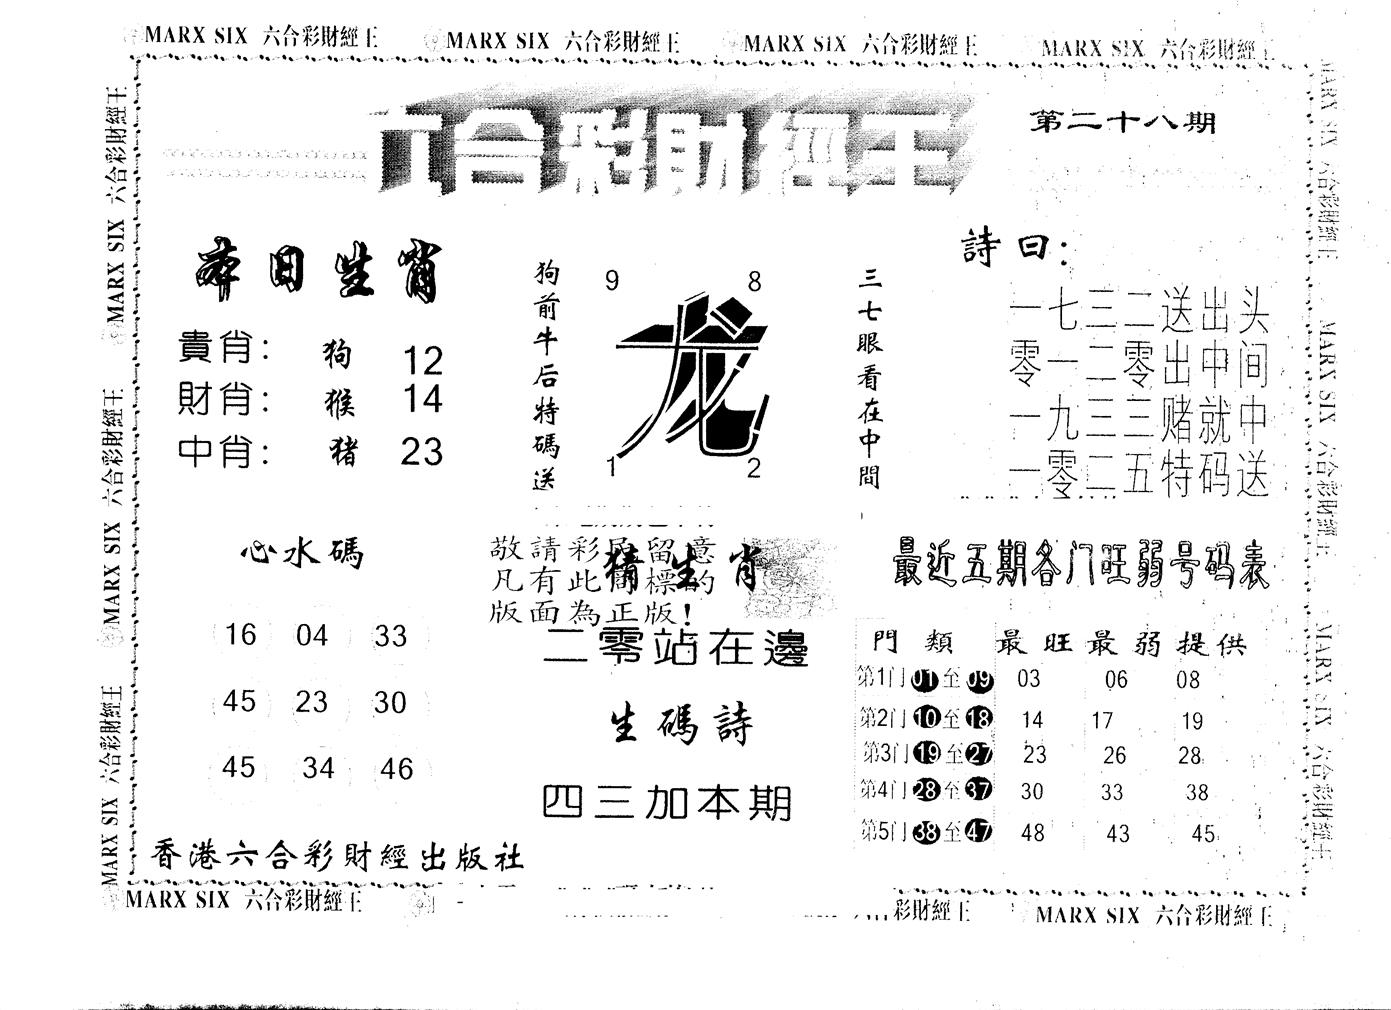 MARX SIX 六合彩財經王
MARX SIX 六合彩財經王
MARX SIX 六合彩財經王
MARX SIX 六合彩財經王
六合彩財經王
第二十八期
本日生肖
貴肖： 狗 12
財肖： 猴 14
中肖： 猪 23
狗前牛后特碼送
9 8
龙
1 2
三七眼看在中間
詩曰：
一七三二送出头
零一二零出中间
一九三三赌就中
一零二五特码送
心水碼
16 04 33
45 23 30
45 34 46
敬請彩民留意
凡有此商標的
版面為正版！
猜生肖
二零站在邊
生碼詩
四三加本期
最近五期各门旺弱号码表
門類 最旺 最弱 提供
第1门 01至09 03 06 08
第2门 10至18 14 17 19
第3门 19至27 23 26 28
第4门 28至37 30 33 38
第5门 38至47 48 43 45
香港六合彩財經出版社
MARX SIX 六合彩財經王
彩財經王
MARX SIX 六合彩財經王
MARX SIX 六合彩財經王
MARX SIX 六合彩財經王
MARX SIX 六合彩財經王
MARX SIX 六合彩財經王
MARX SIX 六合彩財經王
MARX SIX 六合彩財經王